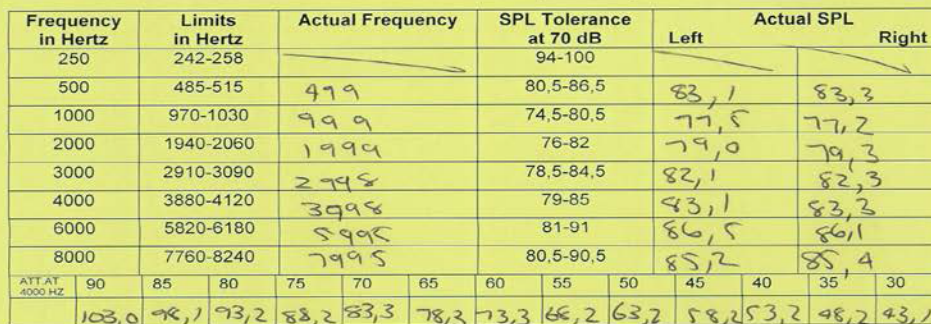 Frequency in Hertz Limits in Hertz Actual Frequency SPL Tolerance at 70 dB Actual SPL Left Right
250 242-258 94-100
500 485-515 499 80,5-86,5 83,1 83,3
1000 970-1030 999 74,5-80,5 77,5 77,2
2000 1940-2060 1999 76-82 79,0 79,3
3000 2910-3090 2998 78,5-84,5 82,1 82,3
4000 3880-4120 3998 79-85 83,1 83,3
6000 5820-6180 5995 81-91 86,5 86,1
8000 7760-8240 7995 80,5-90,5 85,2 85,4
ATT.AT 4000 HZ 90 85 80 75 70 65 60 55 50 45 40 35 30
103,0 98,1 93,2 88,2 83,3 78,3 73,3 68,2 63,2 58,2 53,2 48,2 43,1